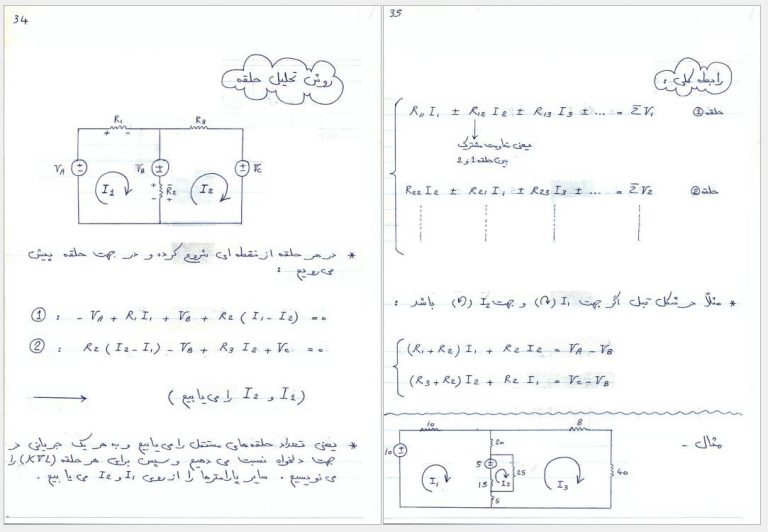 34
روش تحلیل حلقه
R1
R3
VA
VB
R2
VC
I1
I2
* در هر حلقه از نقطه ای شروع کرده و در جهت حلقه پیش
می رویم :
① : - VA + R1 I1 + VB + R2 ( I1 - I2 ) = 0
② : R2 ( I2 - I1 ) - VB + R3 I2 + VC = 0
→ ( I1 و I2 را می یابیم )
* یعنی تعداد حلقه های مستقل را می یابیم و به هر یک جریانی در
جهت دلخواه نسبت می دهیم و سپس برای هر حلقه (KVL) را
می نویسیم . سایر پارامترها را از روی I1 و I2 می یابیم .
35
رابطه کلی :
حلقه ① R11 I1 ± R12 I2 ± R13 I3 ± ... = ΣV1
یعنی مقاومت مشترک
بین حلقه 1 و 2
حلقه ② R22 I2 ± R21 I1 ± R23 I3 ± ... = ΣV2
* مثلاً در شکل قبل اگر جهت I1 (↻) و جهت I2 (↺) باشد :
(R1 + R2) I1 + R2 I2 = VA - VB
(R3 + R2) I2 + R2 I1 = VC - VB
مثال -
10
8
20
10
5
25
40
15
5
I1
I2
I3